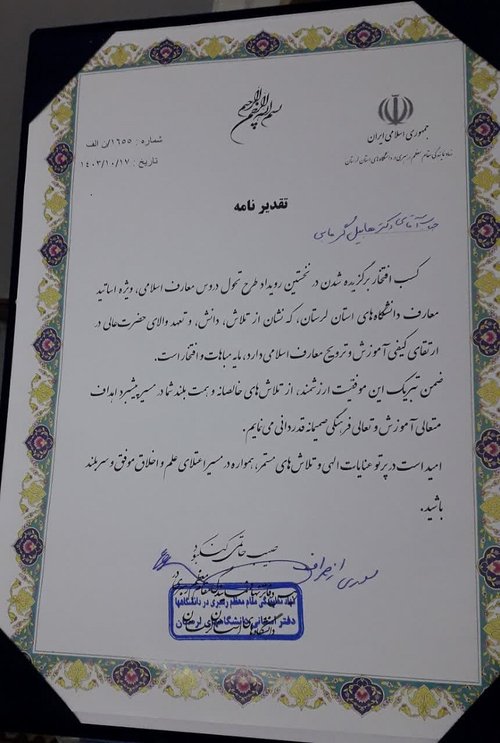 بسم الله الرحمن الرحیم
جمهوری اسلامی ایران
نهاد نمایندگی مقام معظم رهبری در دانشگاه‌های استان لرستان
شماره : ۱۶۵۵/ن الف
تاریخ : ۱۴۰۳/۱۰/۱۷
تقدیر نامه
جناب آقای دکتر هابیل
کسب افتخار برگزیده شدن در نخستین رویداد طرح تحول دروس معارف اسلامی، ویژه اساتید
معارف دانشگاه‌های استان لرستان، که نشان از تلاش، دانش، و تعهد والای حضرت‌عالی در
ارتقای کیفی آموزش و ترویج معارف اسلامی دارد، مایه مباهات و افتخار است.
ضمن تبریک این موفقیت ارزشمند، از تلاش‌های خالصانه و همت بلند شما در مسیر پیشبرد اهداف
متعالی آموزش و تعالی فرهنگی صمیمانه قدردانی می‌نمایم.
امید است در پرتو عنایات الهی و تلاش‌های مستمر، همواره در مسیر اعتلای علم و اخلاق موفق و سربلند
باشید.
نهاد نمایندگی مقام معظم رهبری در دانشگاهها
دفتر استانی دانشگاههای لرستان